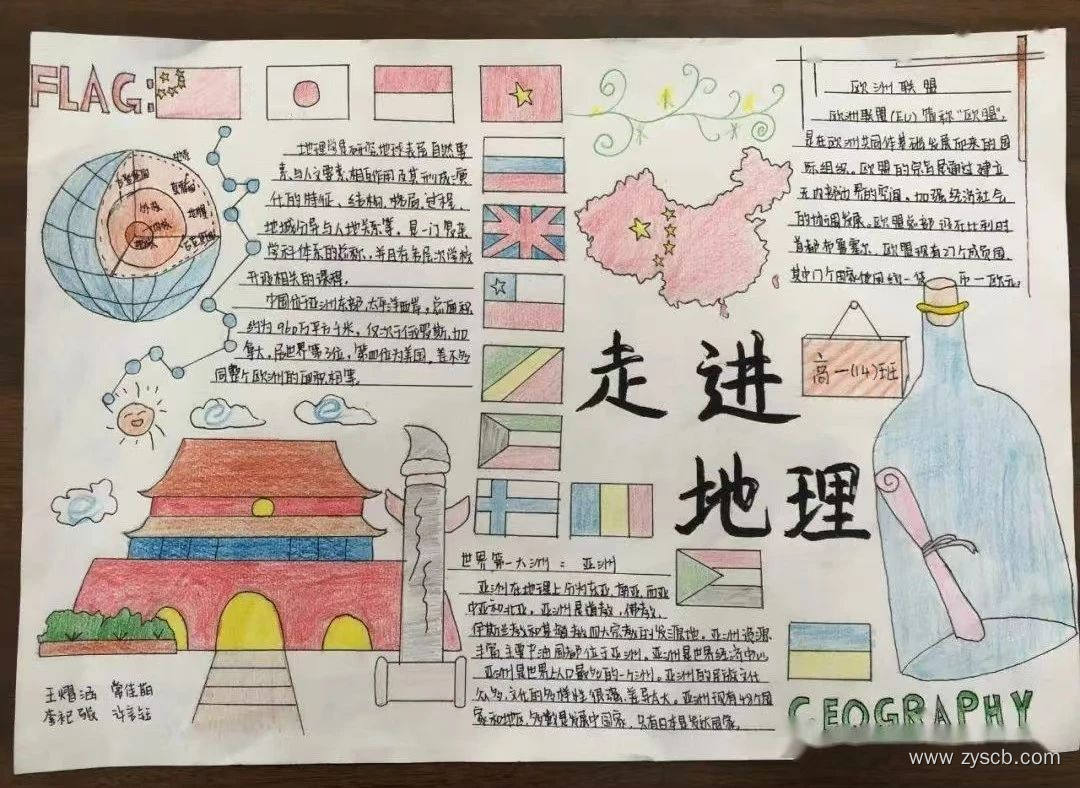 FLAG:
地理学是研究地球表层自然要
素与人文要素相互作用及其形成演
化的特征、结构、格局、过程、
地域分异与人地关系等,是一门复杂
学科体系的总称,并且在各层次学校
开设相关的课程。
中国位于亚洲东部,太平洋西岸,总面积
约为960万平方千米,仅次于俄罗斯、加
拿大,居世界第3位,第四位为美国,差不多
同整个欧洲的面积相等。
地壳
地幔
外核
内核
欧洲联盟
欧洲联盟(EU)简称“欧盟”,
是在欧洲共同体基础发展而来的国
际组织。欧盟的宗旨是通过建立
无内部边界的空间,加强经济社会
的协调发展。欧盟总部设在比利时
首都布鲁塞尔、欧盟现有27个成员国
其中17个国家使用统一货币一欧元。
走进
地理
高一(14)班
世界第一大洲:亚洲
亚洲在地理上分为东亚、南亚、西亚
中亚和北亚。亚洲是道教,佛教,
伊斯兰教和基督教四大宗教的发源地。亚洲资源
丰富,主要产油国都位于亚洲。亚洲是世界经济中心
亚洲是世界上人口最多的一个洲。亚洲的民族文化
众多,文化的多样性很强,差异也大。亚洲现有48个国
家和地区,多数是发展中国家,只有日本是发达国家。
王熠涵 常佳萌
GEOGRAPHY
www.zyscb.com